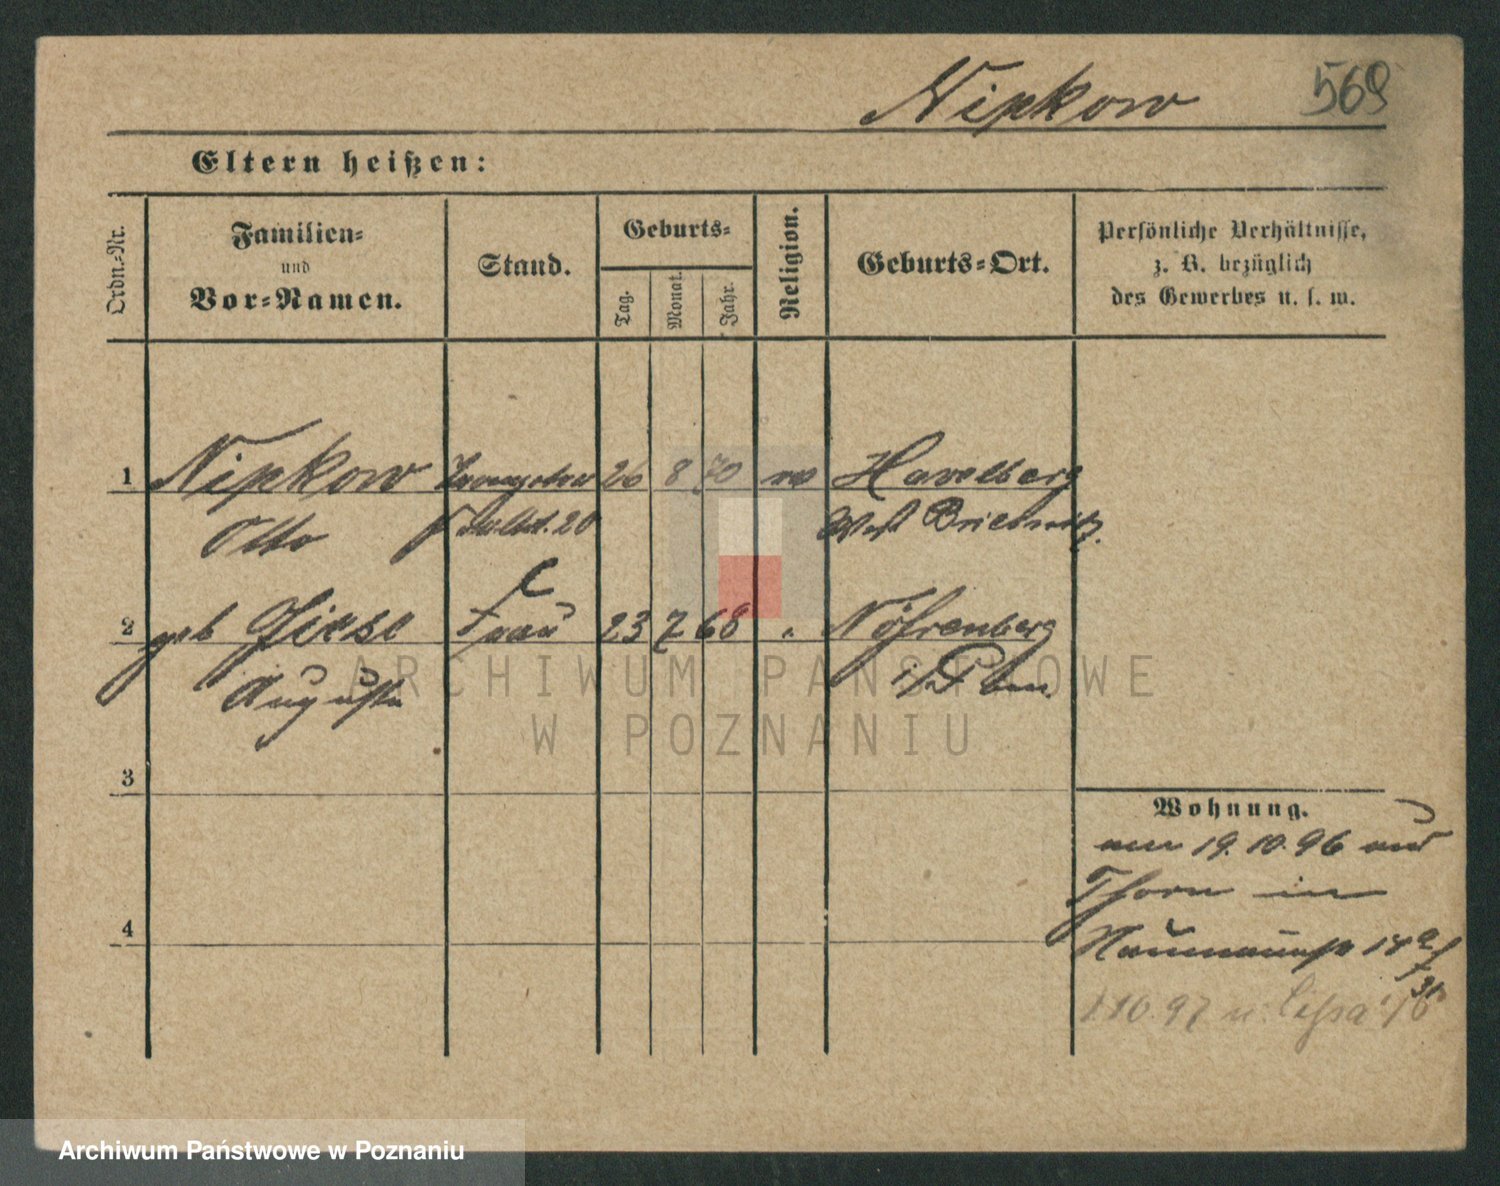 Nipkow 569
Eltern heißen:
Ordn.-Nr.
Familien-
und
Vor-Namen.
Stand.
Geburts-
Tag.
Monat.
Jahr.
Religion.
Geburts-Ort.
Persönliche Verhältnisse,
z. B. bezüglich
des Gewerbes u. s. w.
1 Nipkow 26 8 70 Havelberg
Otto 20 West
2 geb Giese Frau 23 7 68 " Nörenberg
Auguste i/Pom.
3
Wohnung.
am 19. 10. 96 aus
Thorn in
4
Naumannstr 14
1 10. 97 n. Lissa i/P
ARCHIWUM PAŃSTWOWE
W POZNANIU
Archiwum Państwowe w Poznaniu